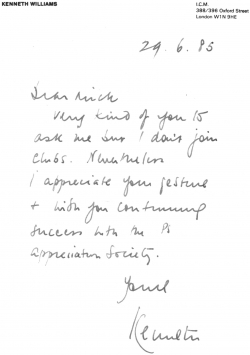 KENNETH WILLIAMS
I.C.M.
388/396 Oxford Street
London W1N 9HE
29.6.85
Dear Mick
Very kind of you to
ask me but I don't join
clubs. Nevertheless
I appreciate your gesture
+ wish you continuing
success with the
appreciation Society.
Yours
Kenneth